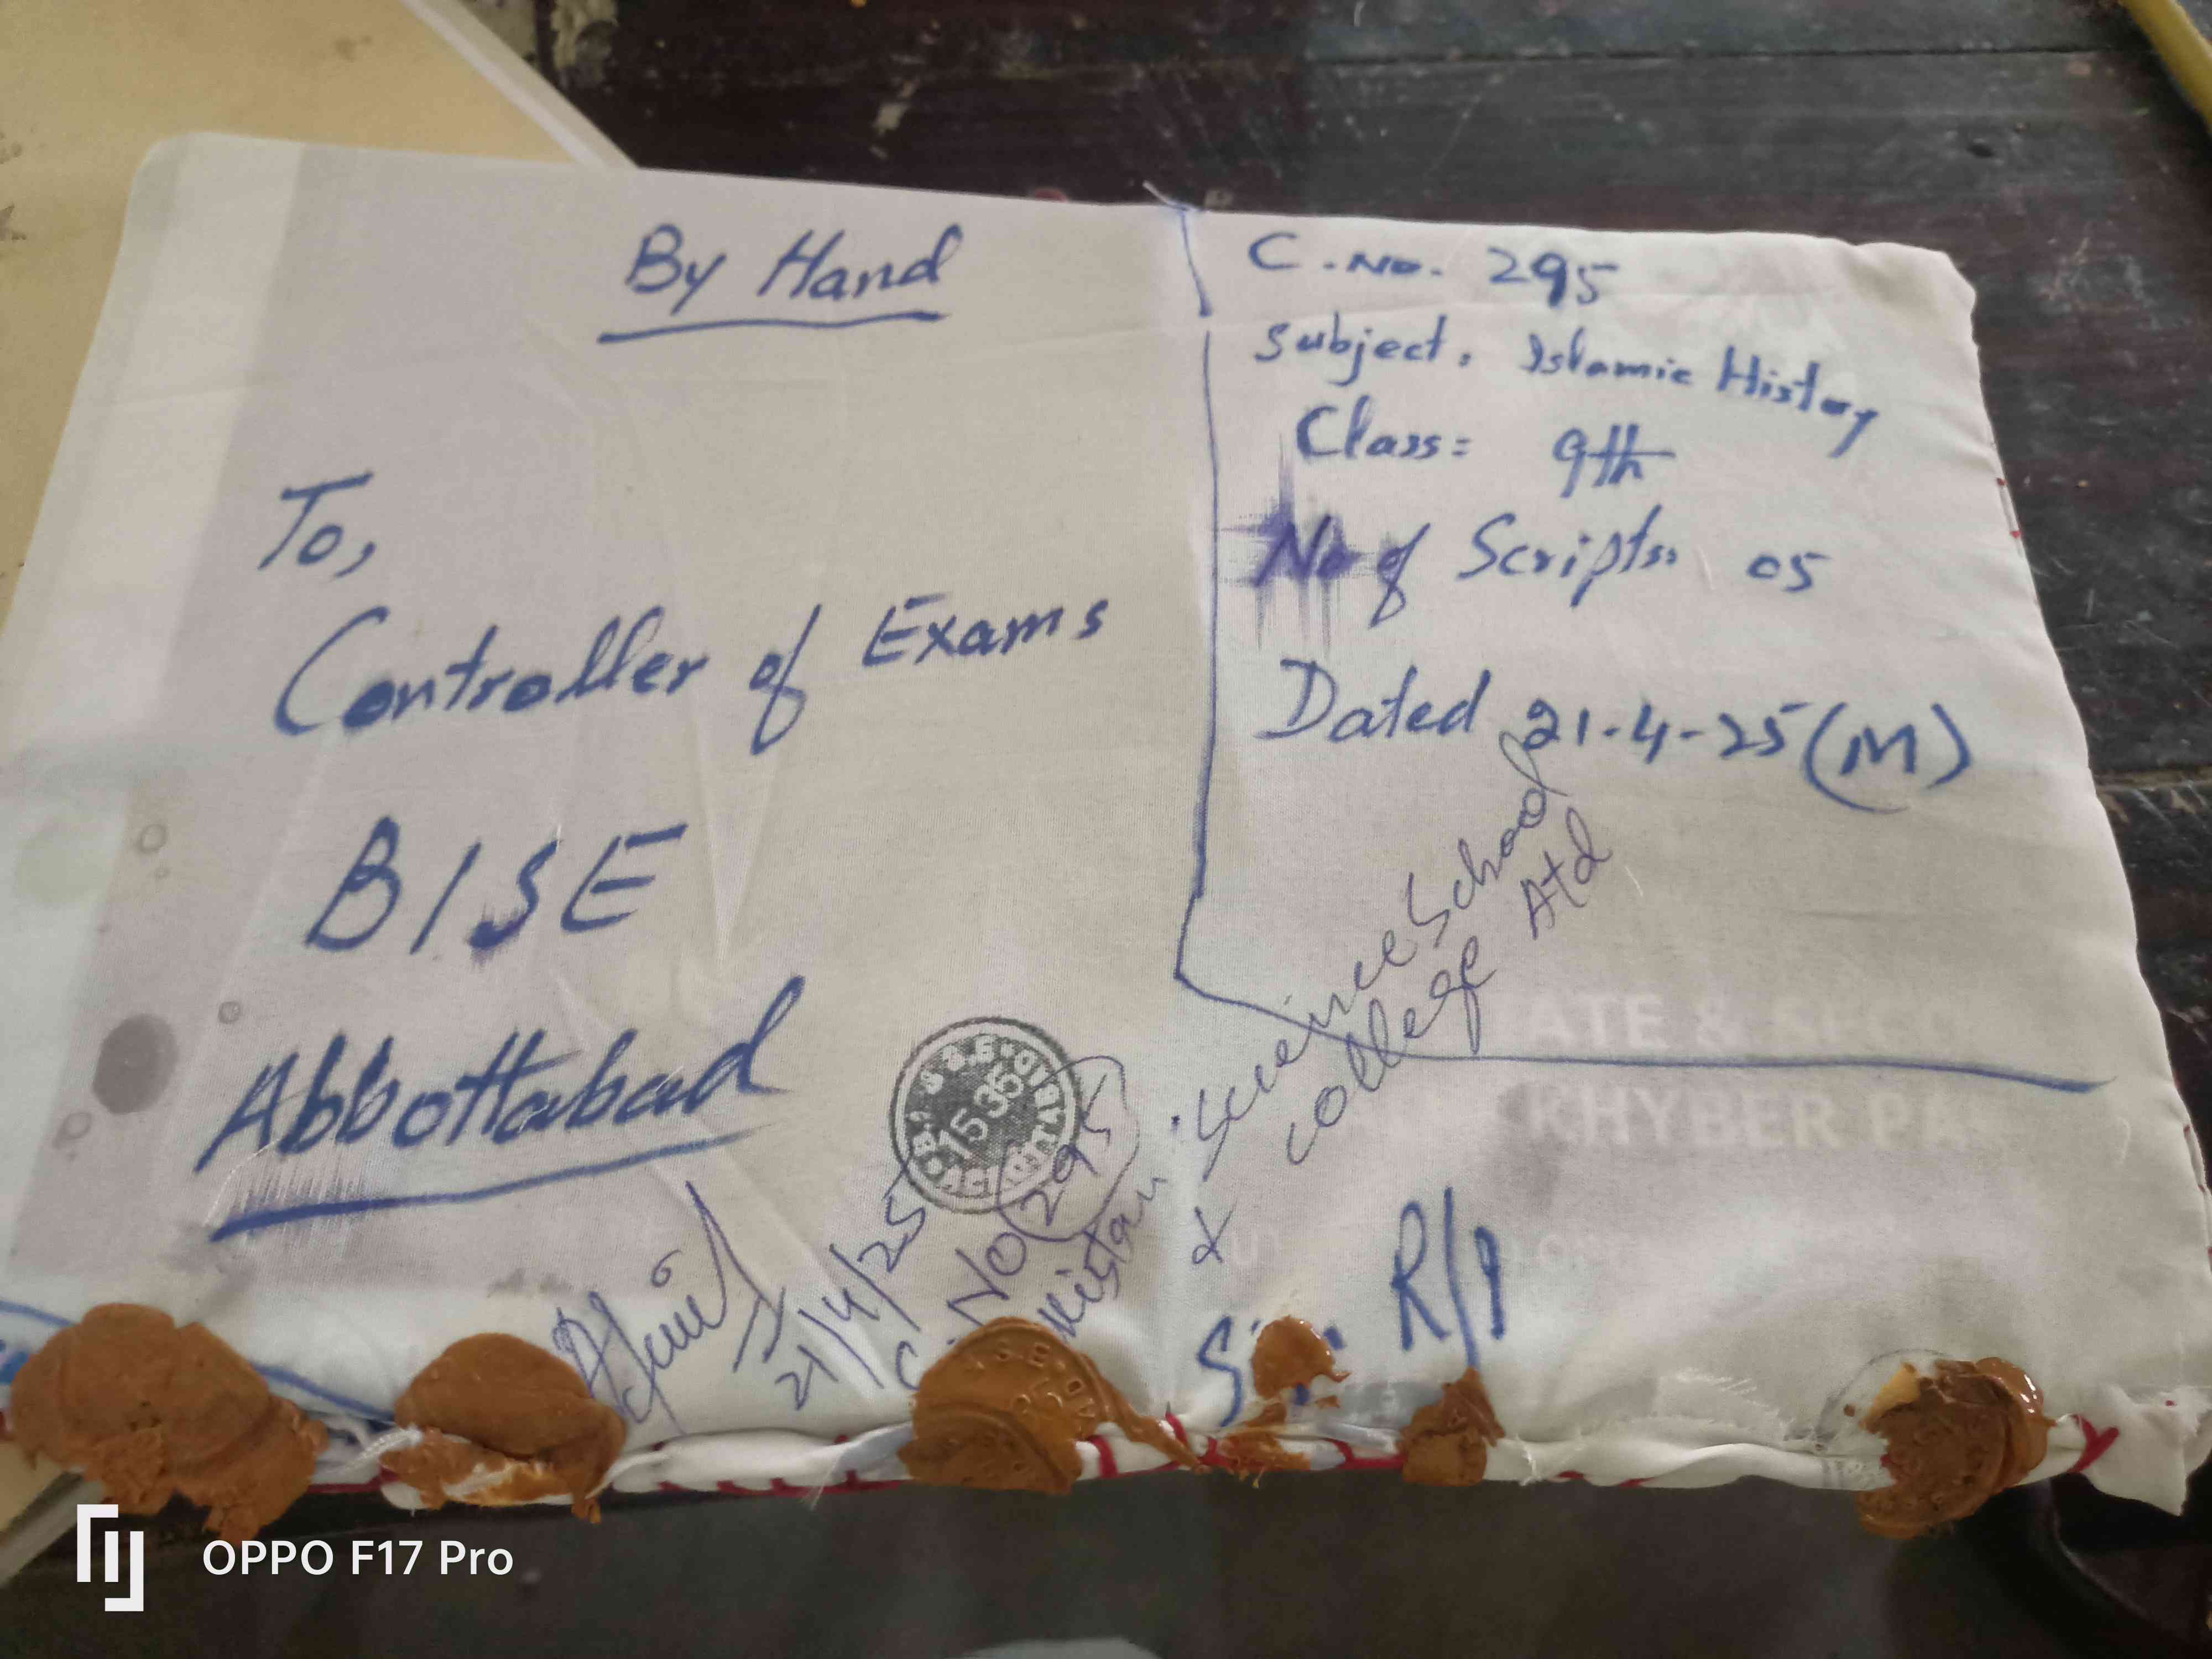 By Hand
To,
Controller of Exams
BISE
Abbottabad
C.No. 295
Subject. Islamic History
Class= 9th
No of Scripts: 05
Dated 21-4-25(M)
21/4/25
C.No 295
Science School
& College Atd
R/P
15 35
ATE & SECO
KHYBER PA
OPPO F17 Pro